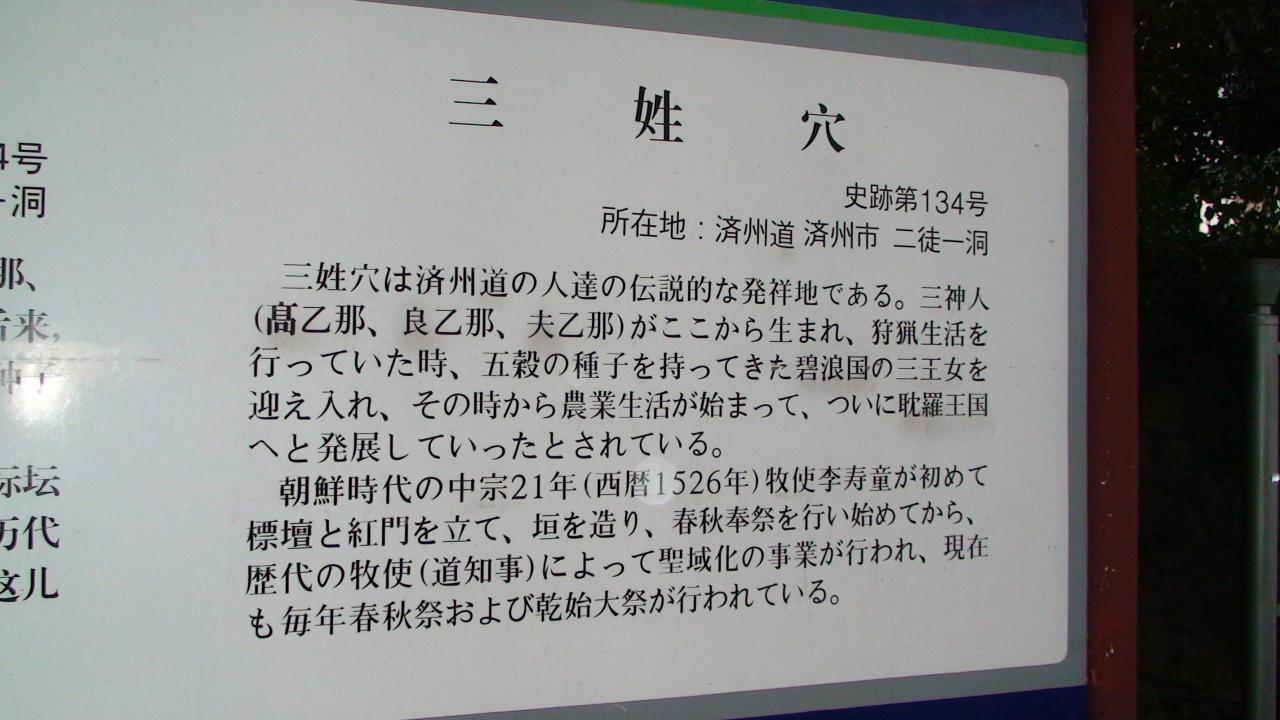 4号
一洞
那、
后来,
种子
标坛
历代
这儿
三姓穴
史跡第134号
所在地 : 済州道 済州市 二徒一洞
三姓穴は済州道の人達の伝説的な発祥地である。三神人
(髙乙那、良乙那、夫乙那)がここから生まれ、狩猟生活を
行っていた時、五穀の種子を持ってきた碧浪国の三王女を
迎え入れ、その時から農業生活が始まって、ついに耽羅王国
へと発展していったとされている。
朝鮮時代の中宗21年(西暦1526年)牧使李寿童が初めて
標壇と紅門を立て、垣を造り、春秋奉祭を行い始めてから、
歴代の牧使(道知事)によって聖域化の事業が行われ、現在
も毎年春秋祭および乾始大祭が行われている。